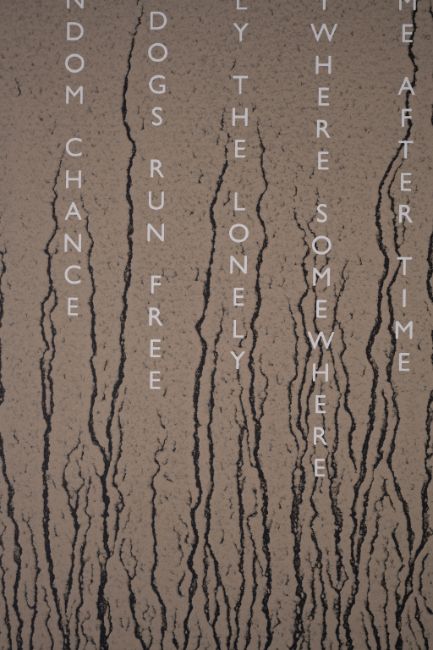 NDOM CHANCE
DOGS RUN FREE
LY THE LONELY
WHERE SOMEWHERE
ME AFTER TIME